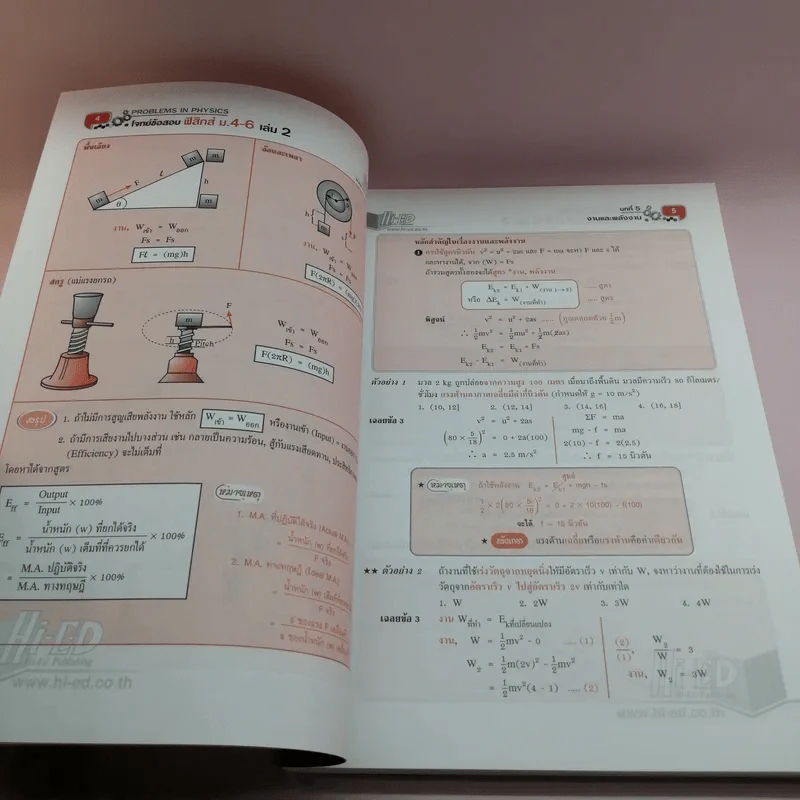 4
PROBLEMS IN PHYSICS
โจทย์ข้อสอบ ฟิสิกส์ ม.4-6 เล่ม 2
พื้นเอียง
m
m
F
l
h
m
θ
งาน, Wเข้า = Wออก
Fs = Fs
Fl = (mg)h
ล้อและเพลา
งาน, Wเข้า = Wออก
Fs = Fs
F(2πR) = (mg)h
สกรู (แม่แรงยกรถ)
F
m
h
Pitch
Wเข้า = Wออก
Fs = Fs
F(2πR) = (mg)h
สรุป
1. ถ้าไม่มีการสูญเสียพลังงาน ใช้หลัก Wเข้า = Wออก หรืองานเข้า (Input) =
2. ถ้ามีการเสียงานไปบางส่วน เช่น กลายเป็นความร้อน, สู้กับแรงเสียดทาน,
(Efficiency) จะไม่เต็มที่
โดยหาได้จากสูตร
Eff = Output/Input × 100%
Eff = น้ำหนัก (w) ที่ยกได้จริง/น้ำหนัก (w) เต็มที่ที่ควรยกได้ × 100%
= M.A. ปฏิบัติจริง/M.A. ทางทฤษฎี × 100%
หมายเหตุ
1. M.A. ที่ปฏิบัติได้จริง (Actual M.A.)
= น้ำหนัก (w) ที่ยกได้จริง/F จริง
2. M.A. ทางทฤษฎี (Ideal M.A.)
Hi-ED
Publishing
www.hi-ed.co.th
Hi-ED
www.hi-ed.co.th
บทที่ 5
งานและพลังงาน
5
หลักสำคัญในเรื่องงานและพลังงาน
1 การใช้สูตรนิวตัน v² = u² + 2as และ F = ma จะหา F และ s ได้
และหางานได้, จาก (W) = Fs
ถ้ารวมสูตรทั้งสองจะได้สูตร "งาน, พลังงาน"
Ek2 = Ek1 + W(งาน 1→2) ..... สูตร
หรือ ΔEk = W(งานที่ทำ) ..... สูตร
พิสูจน์ v² = u² + 2as ..... (คูณตลอดด้วย ½m)
∴ ½mv² = ½mu² + ½m(2as)
Ek2 = Ek1 + Fs
Ek2 - Ek1 = W(งานที่ทำ)
ตัวอย่าง 1 มวล 2 kg ถูกปล่อยจากความสูง 100 เมตร เมื่อมาถึงพื้นดิน มวลมีความเร็ว 80 กิโลเมตร/
ชั่วโมง แรงต้านอากาศเฉลี่ยมีค่ากี่นิวตัน (กำหนดให้ g = 10 m/s²)
1. (10, 12] 2. (12, 14] 3. (14, 16] 4. (16, 18]
เฉลยข้อ 3 v² = u² + 2as ΣF = ma
(80 × 5/18)² = 0 + 2a(100) mg - f = ma
2(10) - f = 2(2.5)
∴ a = 2.5 m/s² ∴ f = 15 นิวตัน
ศูนย์
★ หมายเหตุ ถ้าใช้พลังงาน Ek2 = Ek1 + mgh - fs
½ × 2(80 × 5/18)² = 0 + 2 × 10(100) - f(100)
จะได้ f = 15 นิวตัน
★ ข้อสังเกต แรงต้านเฉลี่ยหรือแรงต้านคือค่าเดียวกัน
★★ ตัวอย่าง 2 ถ้างานที่ใช้เร่งวัตถุจากหยุดนิ่งให้มีอัตราเร็ว v เท่ากับ W, จงหาว่างานที่ต้องใช้ในการเร่ง
วัตถุจากอัตราเร็ว v ไปสู่อัตราเร็ว 2v เท่ากับเท่าใด
1. W 2. 2W 3. 3W 4. 4W
เฉลยข้อ 3 งาน Wที่ทำ = Ekที่เปลี่ยนแปลง
งาน, W = ½mv² - 0 ..... (1) (2)/(1), W₂/W = 3
W₂ = ½m(2v)² - ½mv² งาน, W₂ = 3W
= ½mv²(4 - 1) ..... (2)
Hi-ED
www.hi-ed.co.th